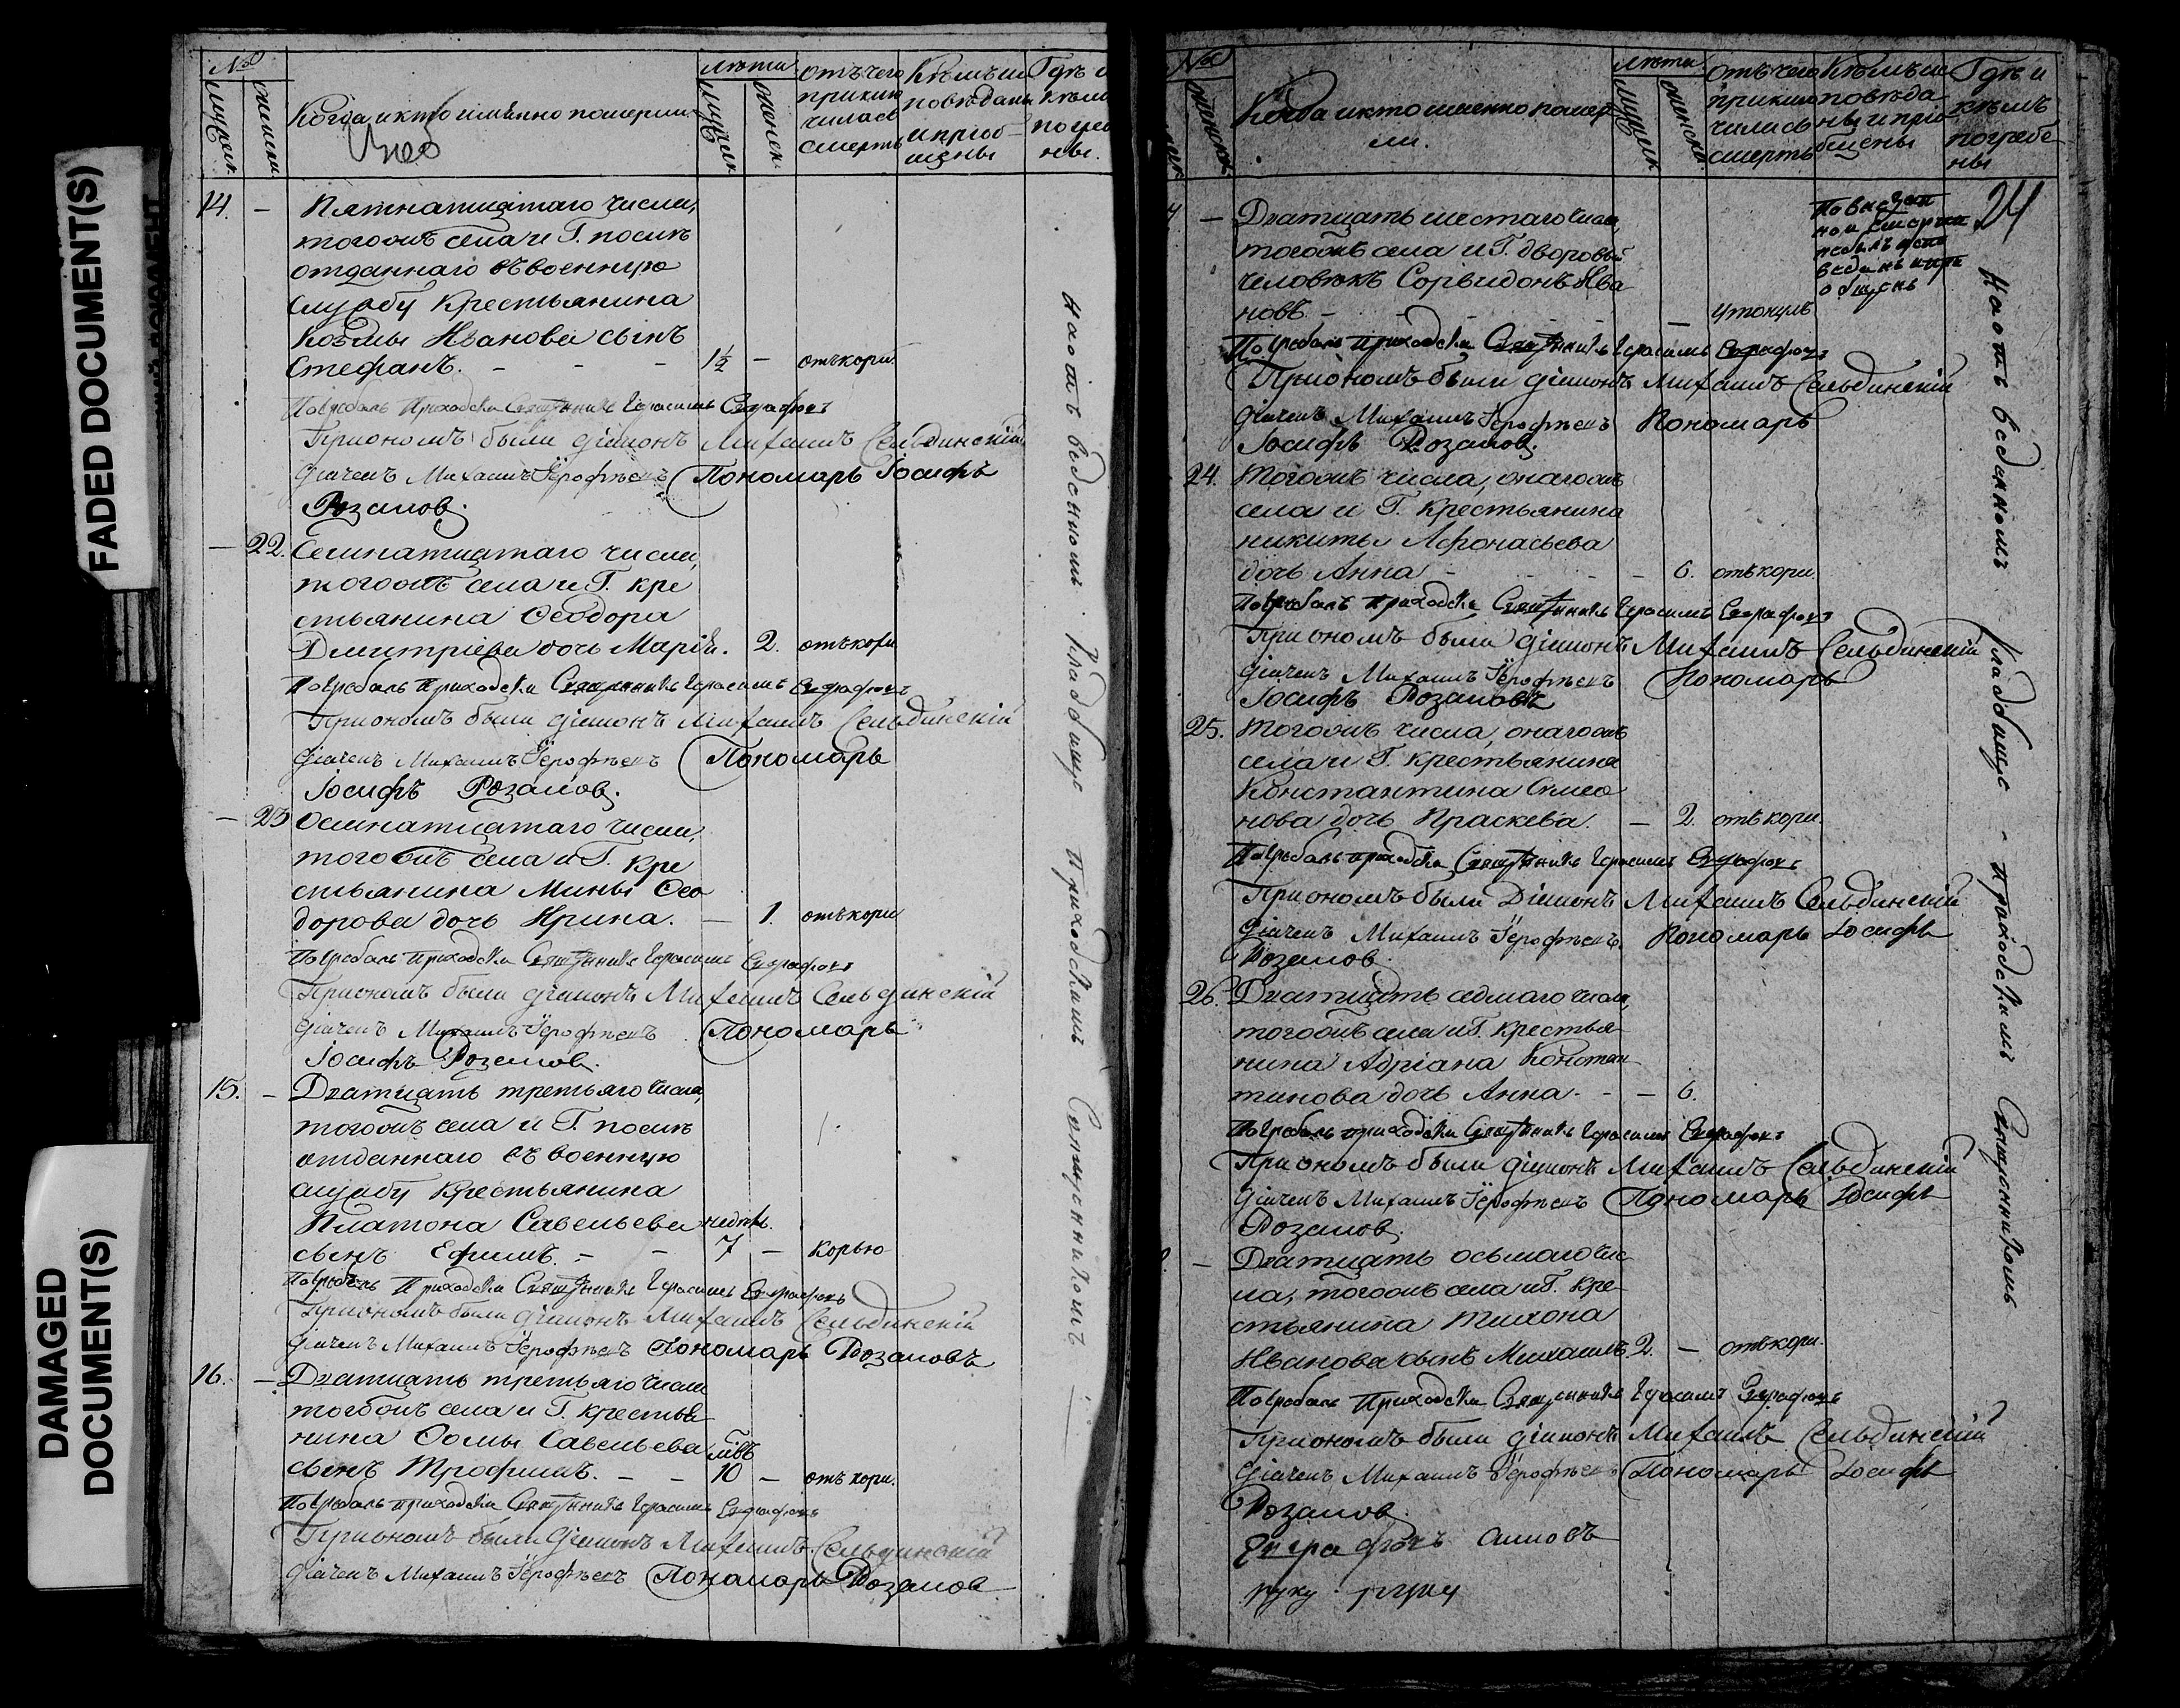 FADED DOCUMENT(S)
DAMAGED
DOCUMENT(S)
№
мужеск.
женски
Когда и кто именно померли
Лѣта
мужеск.
женск
Отъ чего
приклю
чилась
смерть
Кѣмъ ис
повѣданы
и приоб-
щены
Гдѣ и
кѣмъ
погребе
ны.
14. — Пятнатцатаго числа,
тогожъ села и Г. послѣ
отданнаго въ военную
службу крестьянина
Козмы Иванова сынъ
Стефанъ. - - - 1½ — отъ кори.
Погребалъ Приходскій Священникъ Герасимъ
При ономъ были діаконъ Михаилъ Сельдинскій
Дьячекъ Михаилъ Іерофѣевъ Пономарь Іосифъ
Розановъ.
— 22. Семнатцатаго числа,
тогожъ села и Г. кре
стьянина Ѳеодора
Дмитріева дочь Марія. 2. отъ кори
Погребалъ Приходскій Священникъ Герасимъ
При ономъ были діаконъ Михаилъ Сельдинскій
Дьячекъ Михаилъ Іерофѣевъ Пономарь
Іосифъ Розановъ.
— 23 Осмнатцатаго числа,
тогожъ села и Г. кре
стьянина Мины Ѳео
дорова дочь Ирина. — 1. отъ кори
Погребалъ Приходскій Священникъ Герасимъ
При ономъ были діаконъ Михаилъ Сельдинскій
Дьячекъ Михаилъ Іерофѣевъ Пономарь
Іосифъ Розановъ.
15. — Дватцать третьяго числа,
тогожъ села и Г. послѣ
отданнаго въ военную
службу крестьянина
Платона Савельева недѣль.
сынъ Ефимъ. - - 7 — корью
Погребалъ Приходскій Священникъ Герасимъ
При ономъ были діаконъ Михаилъ Сельдинскій
Дьячекъ Михаилъ Іерофѣевъ Пономарь Розановъ
16. — Дватцать третьяго числа
тогожъ села и Г. крестья
нина Ѳомы Савельева лѣтъ
сынъ Трофимъ. - - 10 — отъ кори.
Погребалъ приходскій Священникъ Герасимъ
При ономъ были діаконъ Михаилъ Сельдинскій
Дьячекъ Михаилъ Іерофѣевъ Пономарь Розановъ
На отведенномъ кладбище приходскимъ Священникомъ
№
женски
Когда и кто именно помер
ли.
Лѣта
мужеск
женска
Отъ чего
приклю
чилась
смерть
Кѣмъ ис
повѣда
ны и прі
общены
Гдѣ и
кѣмъ
погребе
ны
24
— Дватцать шестаго числа,
тогожъ села и Г. дворовый
человѣкъ Иванъ
новъ - - - - — утонулъ
Погребалъ Приходскій Священникъ Герасимъ
При ономъ были діаконъ Михаилъ Сельдинскій
Дьячекъ Михаилъ Іерофѣевъ Пономарь
Іосифъ Розановъ.
24. Тогожъ числа, онагожъ
села и Г. крестьянина
Никиты Афонасьева
дочь Анна - - - 6. отъ кори.
Погребалъ Приходскій Священникъ Герасимъ
При ономъ были діаконъ Михаилъ Сельдинскій
Дьячекъ Михаилъ Іерофѣевъ Пономарь
Іосифъ Розановъ
25. Тогожъ числа, онагожъ
села и Г. крестьянина
Константина Симео
нова дочь Праскева. — 2. отъ кори.
Погребалъ приходскій Священникъ Герасимъ
При ономъ были Діаконъ Михаилъ Сельдинскій
Дьячекъ Михаилъ Іерофѣевъ Пономарь Іосифъ
Розановъ.
26. Дватцать седмаго числа,
тогожъ села и Г. крестья
нина Адріана Констан
тинова дочь Анна. - — 6.
Погребалъ приходскій Священникъ Герасимъ
При ономъ были діаконъ Михаилъ Сельдинскій
Дьячекъ Михаилъ Іерофѣевъ Пономарь Іосифъ
Розановъ.
— Дватцать осьмаго чис
ла, тогожъ села и Г. кре
стьянина Тихона
Иванова сынъ Михаилъ 2. — отъ кори.
Погребалъ Приходскій Священникъ Герасимъ
При ономъ были діаконъ Михаилъ Сельдинскій
Дьячекъ Михаилъ Іерофѣевъ Пономарь Іосифъ
Розановъ.
руку
На отведенномъ кладбище приходскимъ Священникомъ